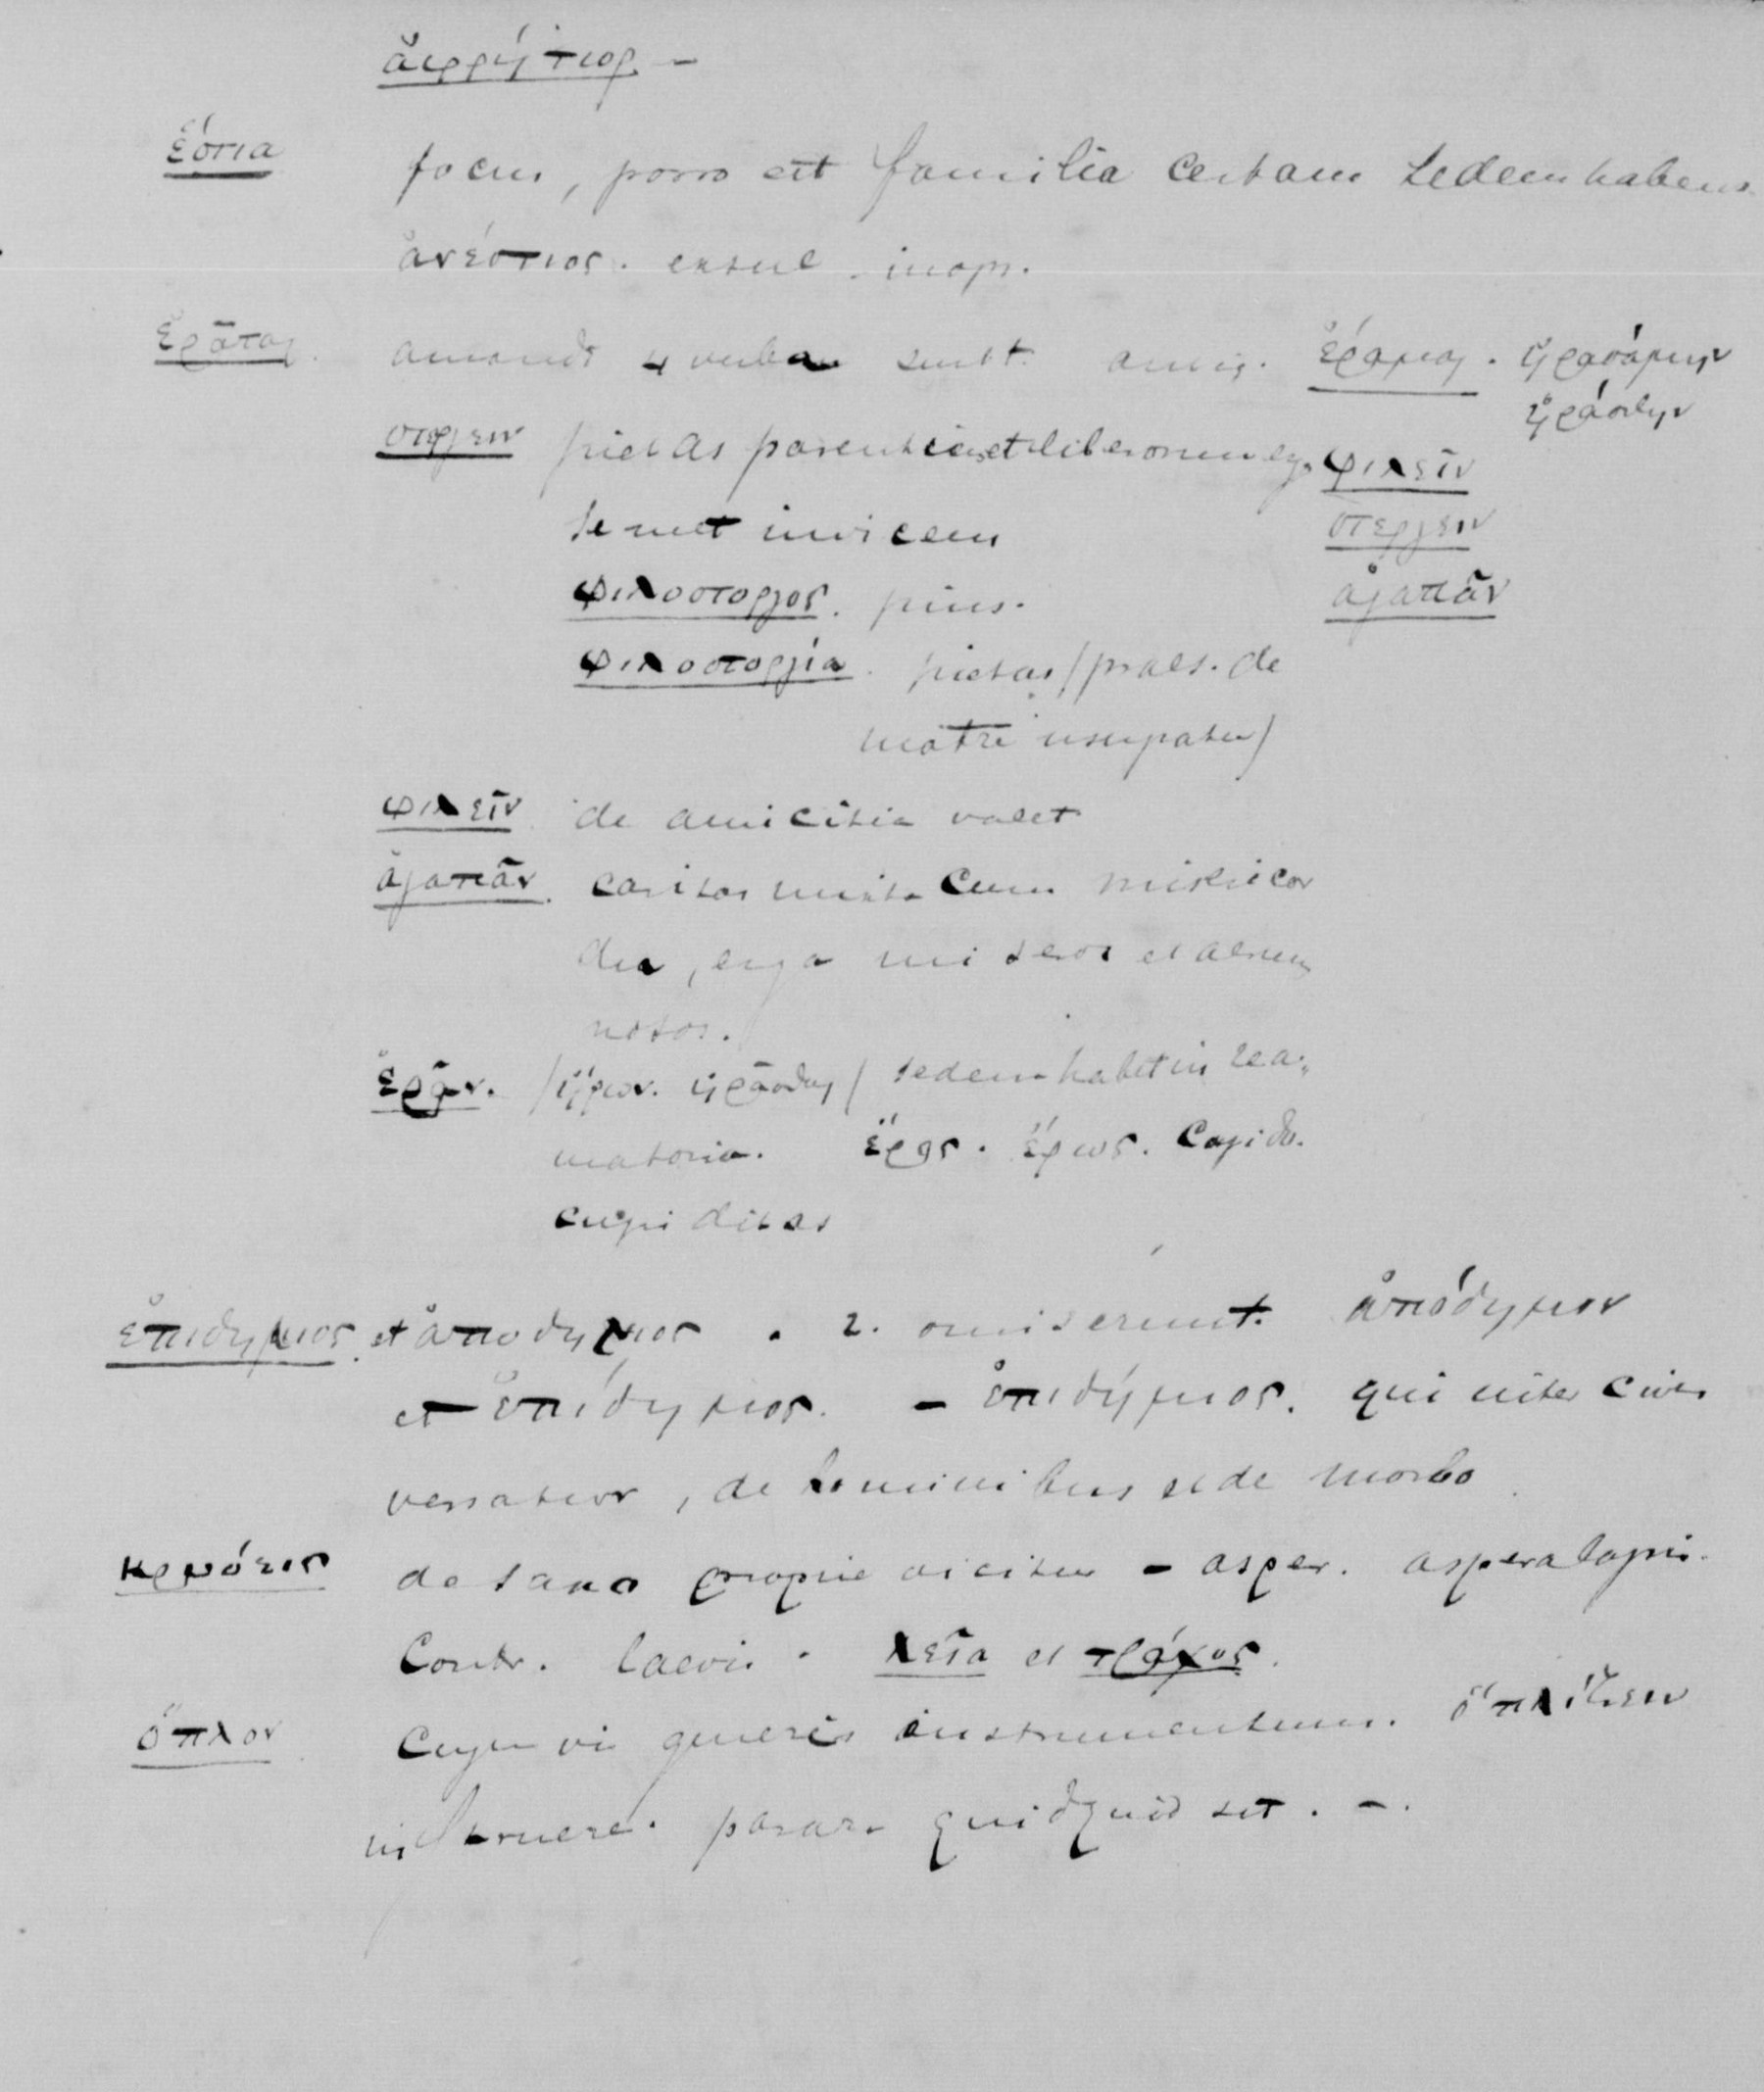 ἑστία focus, porro est familia certam sedem habens
ἀνέστιος. exsul. inops.
ἐρᾶται. amandi 4 verba sunt. ἔραμαι. ἠρασάμην
ἠράσθην
στέργειν pietas parentum et liberorum erga φιλεῖν
semet invicem στέργειν
φιλόστοργος. pius. ἀγαπᾶν
φιλοστοργία. pietas (praes. de
matre usurpatur)
φιλεῖν de amicitia valet
ἀγαπᾶν. caritas mixta cum misericor
dia, erga miseros et aegro
tos.
ἐρᾶν. (ἤρων. ἐρᾶσθαι) sedem habet in re a-
matoria. ἔρος. ἔρως. Cupido.
cupiditas
ἐπιδήμιος. et ἀποδήμιος. 2. omiserunt. ἀπόδημον
et ἐπίδημος. - ἐπιδήμιος. qui inter cives
versatur, de hominibus et de morbo
de saxo proprie dicitur - asper. aspera lapis.
Contr. laevis. λεῖα et
ὅπλον cujusvis generis instrumentum. ὁπλίζειν
instruere. parare quidquid sit. -.